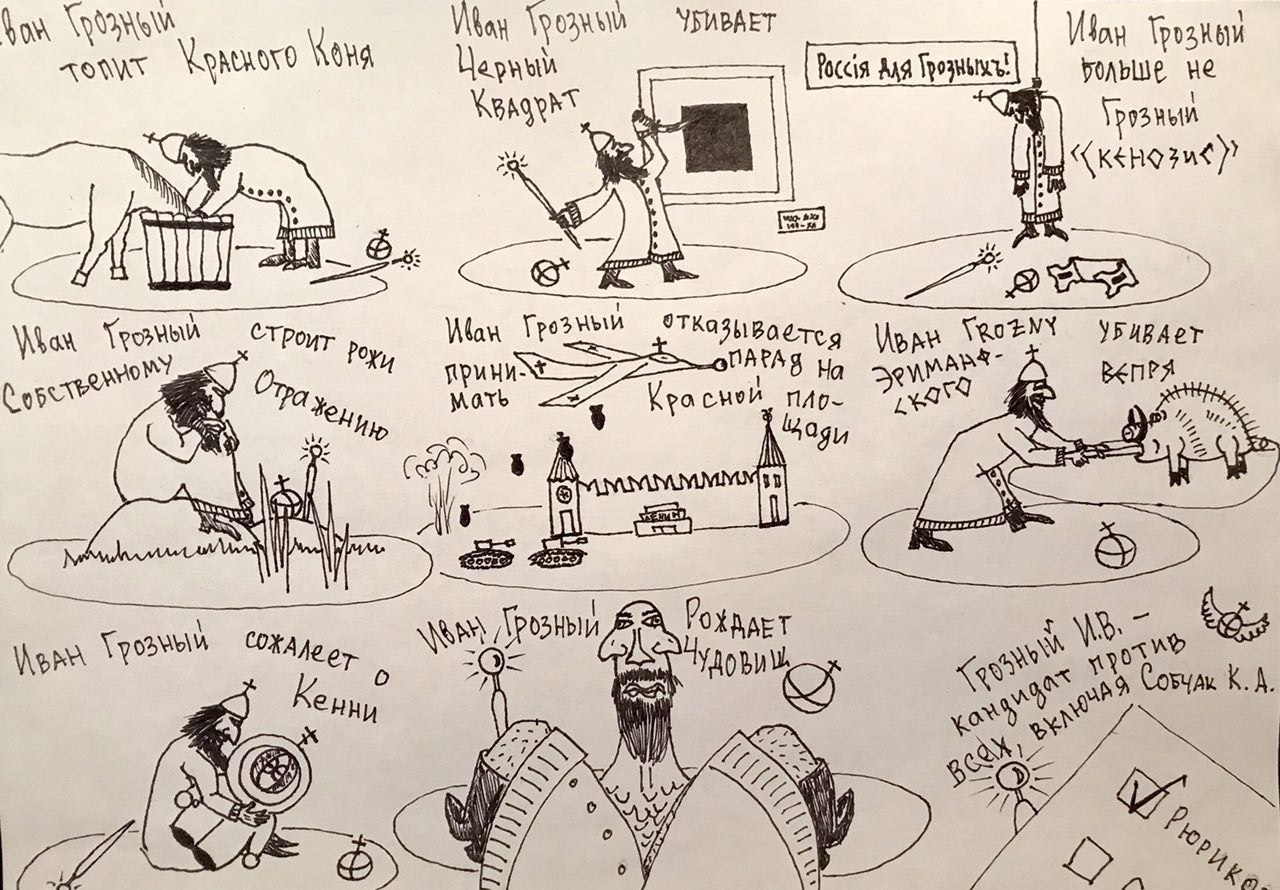 Иван Грозный
топит Красного Коня
Иван Грозный убивает
Черный
Квадрат
Россія для Грозныхъ!
Иван Грозный
больше не
Грозный
«Кенозис»
Иван Грозный строит рожи
Собственному
Отражению
Иван Грозный отказывается
прини-
мать
парад на
Красной пло-
щади
Ленин
Иван Grozny убивает
Эриманф-
ского
вепря
Иван Грозный сожалеет о
Кенни
Иван Грозный
Рождает
Чудовищ
Грозный И.В. —
кандидат против
всех, включая Собчак К.А.
Рюрико